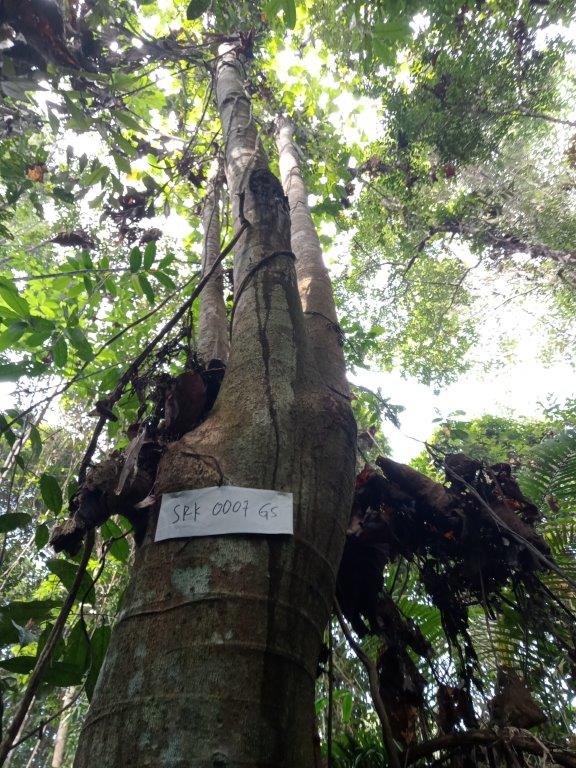 SRK 0007 GS